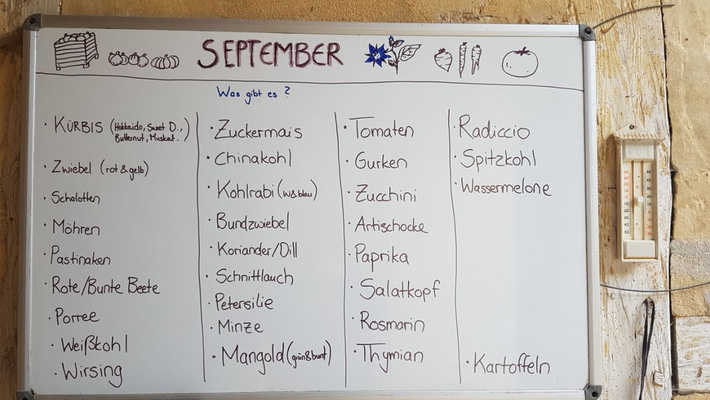 SEPTEMBER
Was gibt es?
· KÜRBIS (Hokkaido, Sweet D.,
Butternut, Muskat..
· Zwiebel (rot & gelb)
· Schalotten
· Möhren
· Pastinaken
· Rote/Bunte Beete
· Porree
· Weißkohl
· Wirsing
· Zuckermais
· Chinakohl
· Kohlrabi (w&blau)
· Bundzwiebel
· Koriander/Dill
· Schnittlauch
· Petersilie
· Minze
· Mangold (grün&bunt)
· Tomaten
· Gurken
· Zucchini
· Artischocke
· Paprika
· Salatkopf
· Rosmarin
· Thymian
· Radiccio
· Spitzkohl
· Wassermelone
· Kartoffeln